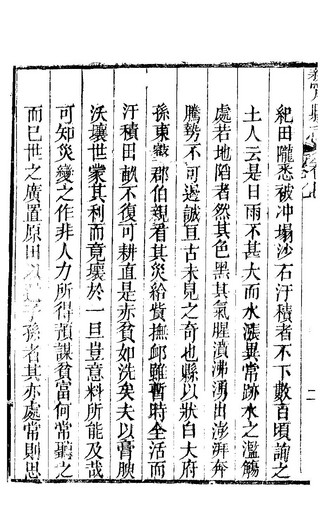 紀田隴悉被冲塌沙石汙積者不下數百頃詢之
土人云是日雨不甚大而水漲異常跡水之濫觴
處若地陷者然其色黑其氣腥濆沸湧出澎湃奔
騰勢不可遏誠亘古未見之奇也縣以狀白大府
孫東巖郡伯親看其災給貲撫卹雖暫時全活而
汙積田畝不復可耕直是亦貧如洗矣夫以膏腴
沃壤世蒙其利而竟壞於一旦豈意料所能及哉
可知災變之作非人力所得預謀貧富何常聽之
而已世之廣置原田以遺子孫者其亦處常則思
二